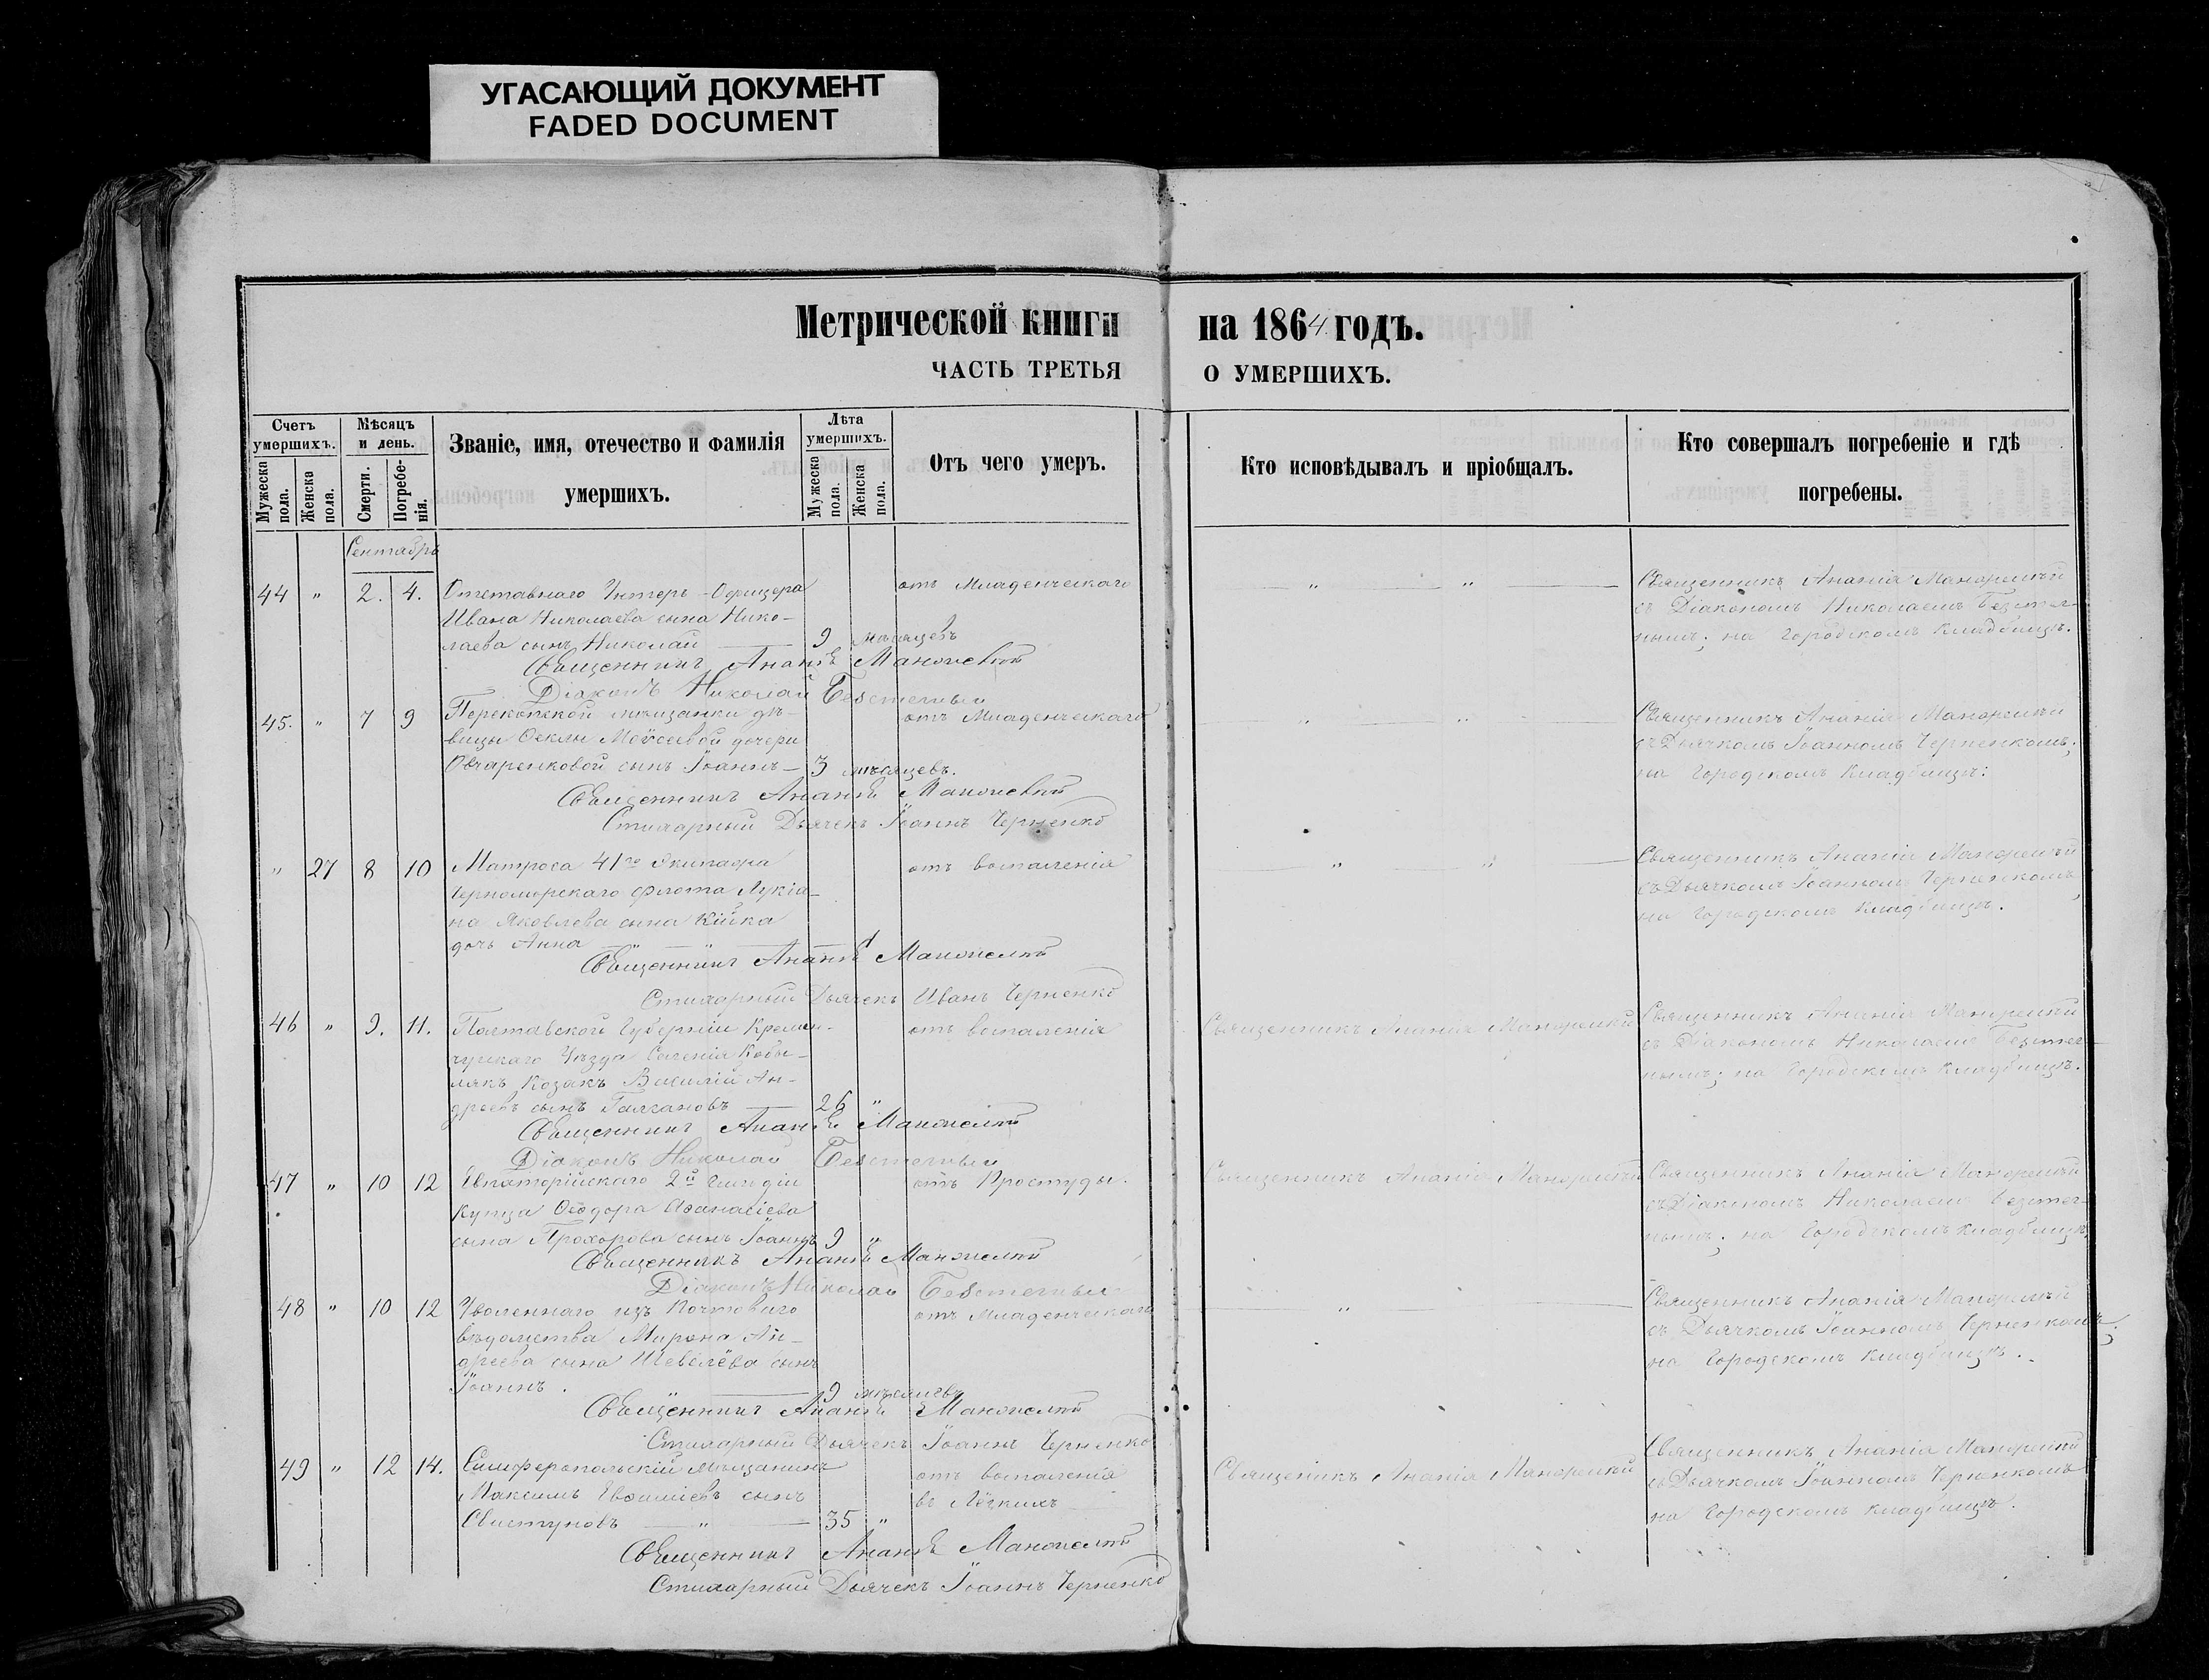 УГАСАЮЩИЙ ДОКУМЕНТ
FADED DOCUMENT
Метрической книги на 1864 годъ.
ЧАСТЬ ТРЕТЬЯ О УМЕРШИХЪ.
Счетъ умершихъ.
Мужеска пола.
Женска пола.
Мѣсяцъ и день.
Смерти.
Погребенія.
Званіе, имя, отечество и фамилія
умершихъ.
Лѣта умершихъ.
Мужеска пола.
Женска пола.
Отъ чего умеръ.
Кто исповѣдывалъ и пріобщалъ.
Кто совершалъ погребеніе и гдѣ
погребены.
Сентябрь
44 " 2. 4. Отставнаго Унтеръ-Офицера отъ Младенческаго
Ивана Николаева сына Нико-
лаева сынъ Николай 9 мѣсяцевъ
Священникъ Ананія
Діаконъ Николай
Священникъ Ананія
съ Діакономъ Николаемъ
на Городскомъ Кладбищѣ.
45. " 7 9 Перекопской мѣщанки дѣ- отъ Младенческаго
вицы Феклы Моѵсеевой дочери
Овчаренковой сынъ Іоаннъ 3 мѣсяцевъ.
Священникъ Ананія
Стихарный Дьячекъ Іоаннъ Черненко
Священникъ Ананія
съ Дьячкомъ Іоанномъ Черненкомъ;
на Городскомъ Кладбищѣ:
" 27 8 10 Матроса 41го Экипажа отъ воспаленія
Черноморскаго флота Лукіа-
на Яковлева сына Кійка
дочь Анна 1
Священникъ Ананія
Стихарный Дьячекъ Иванъ Черненко
Священникъ Ананія
съ Дьячкомъ Іоанномъ Черненкомъ,
на Городскомъ Кладбищѣ.
46 " 9. 11. Полтавской Губерніи Кремен- отъ воспаленія
чугскаго Уѣзда Селенія Кобы-
лякъ Козакъ Василій Ан-
дреевъ сынъ 26 "
Священникъ Ананія
Діаконъ Николай
Священникъ Ананія
Священникъ Ананія
съ Діакономъ Николаемъ
на Городскомъ Кладбищѣ.
47 " 10 12 Евпаторійскаго 2й Гильдіи отъ Простуды.
Купца Ѳеодора Аѳанасіева
сына Прохорова сынъ Іоаннъ 9 "
Священникъ Ананія
Діаконъ Николай
Священникъ Ананія
Священникъ Ананія
съ Діакономъ Николаемъ
на Городскомъ Кладбищѣ
48 " 10 12 Уволеннаго изъ Почтоваго отъ Младенческаго
вѣдомства Мирона Ан-
дреева сына Шевелёва сынъ
Іоаннъ. 9 мѣсяцевъ
Священникъ Ананія
Стихарный Дьячекъ Іоаннъ Черненко
Священникъ Ананія
съ Дьячкомъ Іоанномъ Черненкомъ;
на Городскомъ Кладбищѣ.
49 " 12 14. Симферопольскій Мѣщанинъ отъ воспаленія
Максимъ Евѳиміевъ сынъ въ Лёгкихъ
Свистуновъ " 35 "
Священникъ Ананія
Стихарный Дьячекъ Іоаннъ Черненко
Священикъ Ананія
Священникъ Ананія
съ Дьячкомъ Іоанномъ Черненкомъ
на Городскомъ Кладбищѣ.